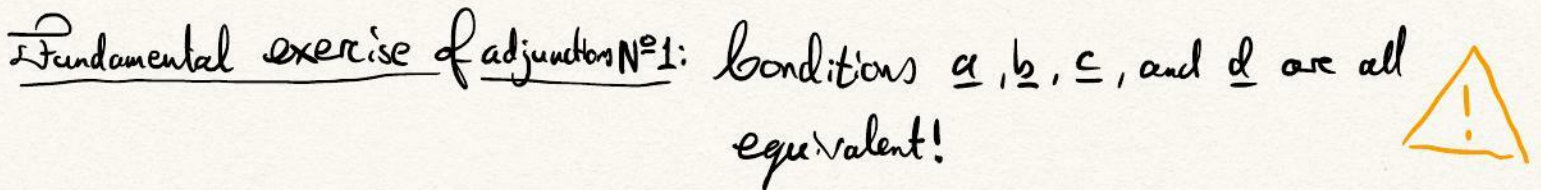 Fundamental exercise of adjunctions Nº1: Conditions a, b, c, and d are all
equivalent!
!